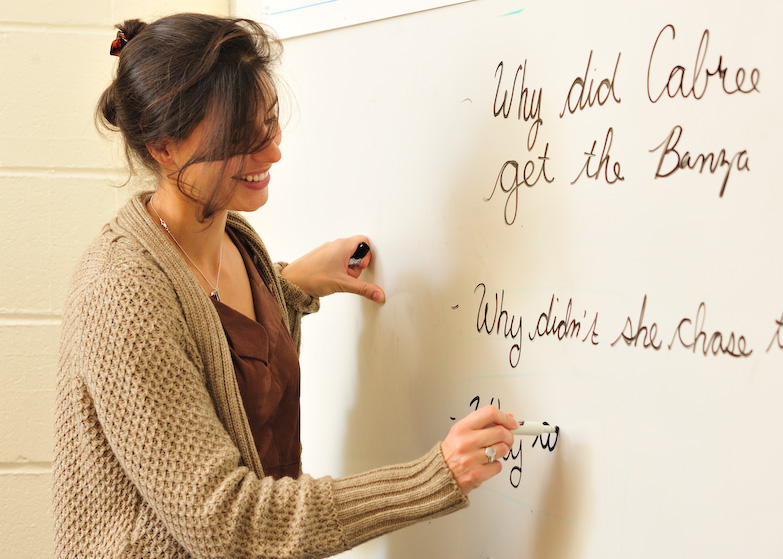 Why did Cabree
get the Banza
- Why didn't she chase t
- Why w